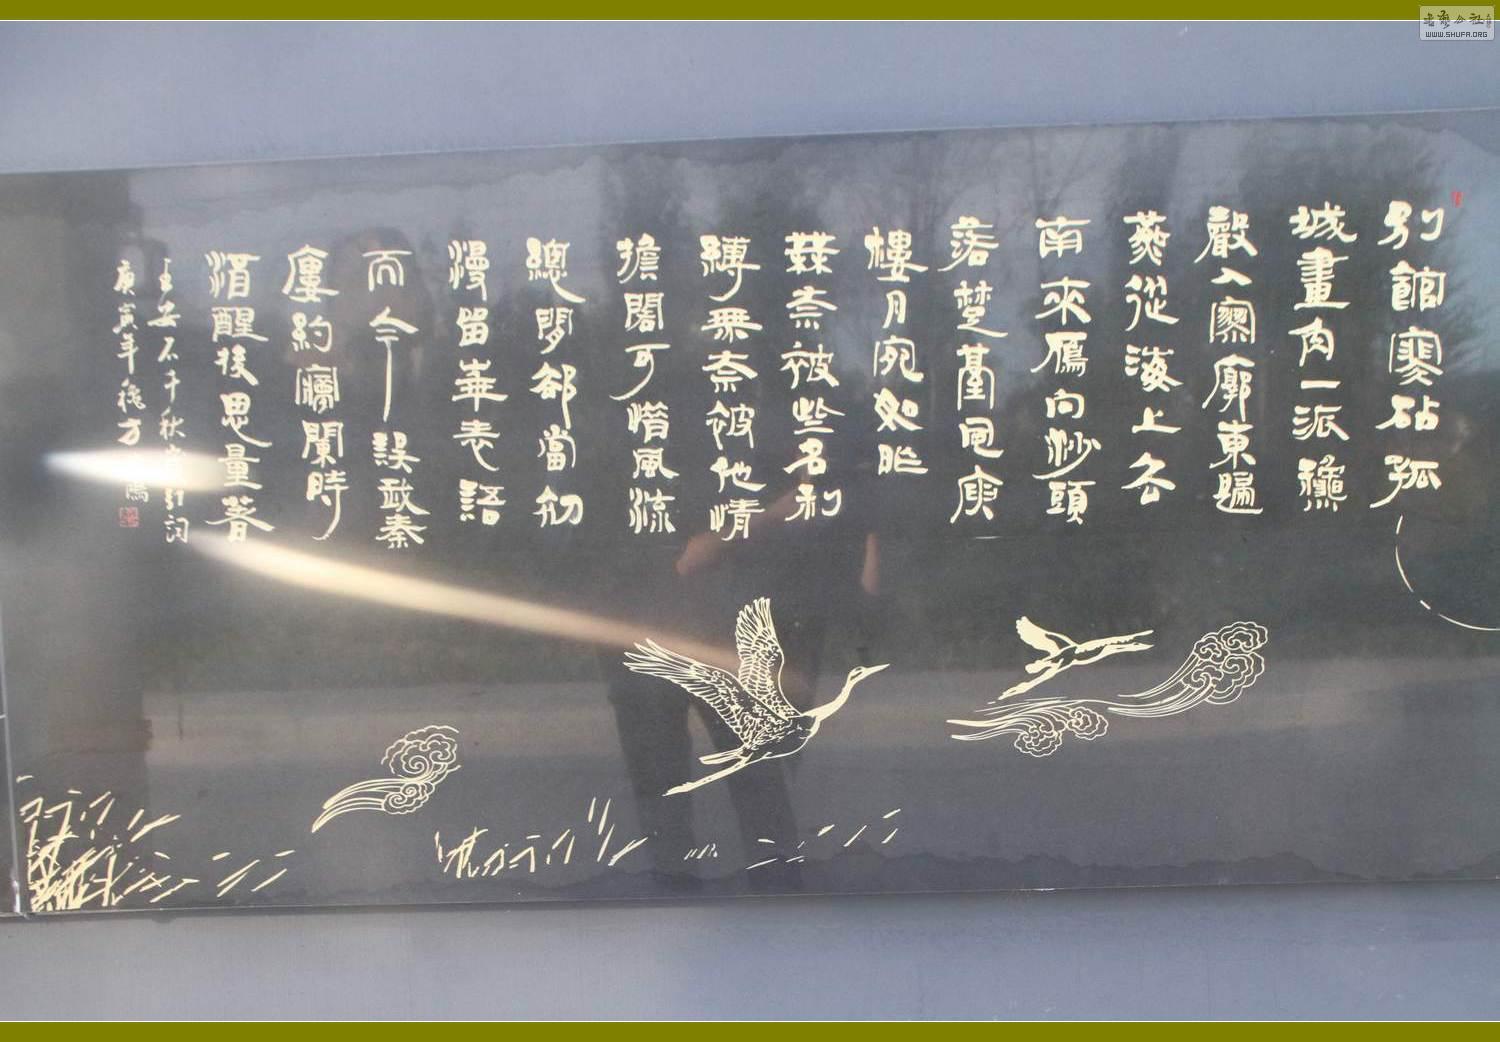 別館寒砧孤
城畫角一派龝
聲入寥廓東歸
燕從海上去
南來鴈向沙頭
落楚臺風庾
樓月宛如昨
無奈被些名利
縛無奈被他情
擔閣可惜風流
總閒卻當初
漫留華表語
而今誤我秦
廔約寱闌時
酒醒後思量著
王安石千秋歲引詞
庚寅年穐方
WWW.SHUFA.ORG